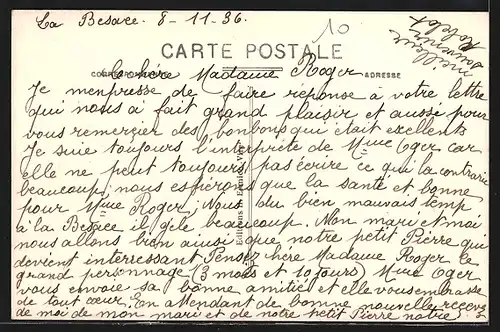 La Besace. 8-11-36.
10
CARTE POSTALE
CORRESPONDANCE
ADRESSE
chère Madame Roger
Je menpresse de faire reponse à votre lettre
qui nous a fait grand plaisir et aussé pour
vous remercier des bonbons qui était excellents
Je suie toujours l'interprète de Mme Oger car
elle ne peut toujours pas écrire ce qui la contrarie
beaucoup, nous espérons que la santé et bonne
pour Mme Roger. Nous du bien mauvais temp
à la Besace il gèle beaucoup. Mon mari et moi
nous allons bien ainsi que notre petit Pierre qui
devient interressant Pensez chere Madame Roger le
grand personnage (3 mois et 10 jours) Mme Oger
vous envoie sa bonne amitié et elle vous embrasse
de tout cœur. En attendant de bonne nouvelle recevez
de moi de mon mari et de notre petit Pierre notre
Editions
meilleur
souvenir